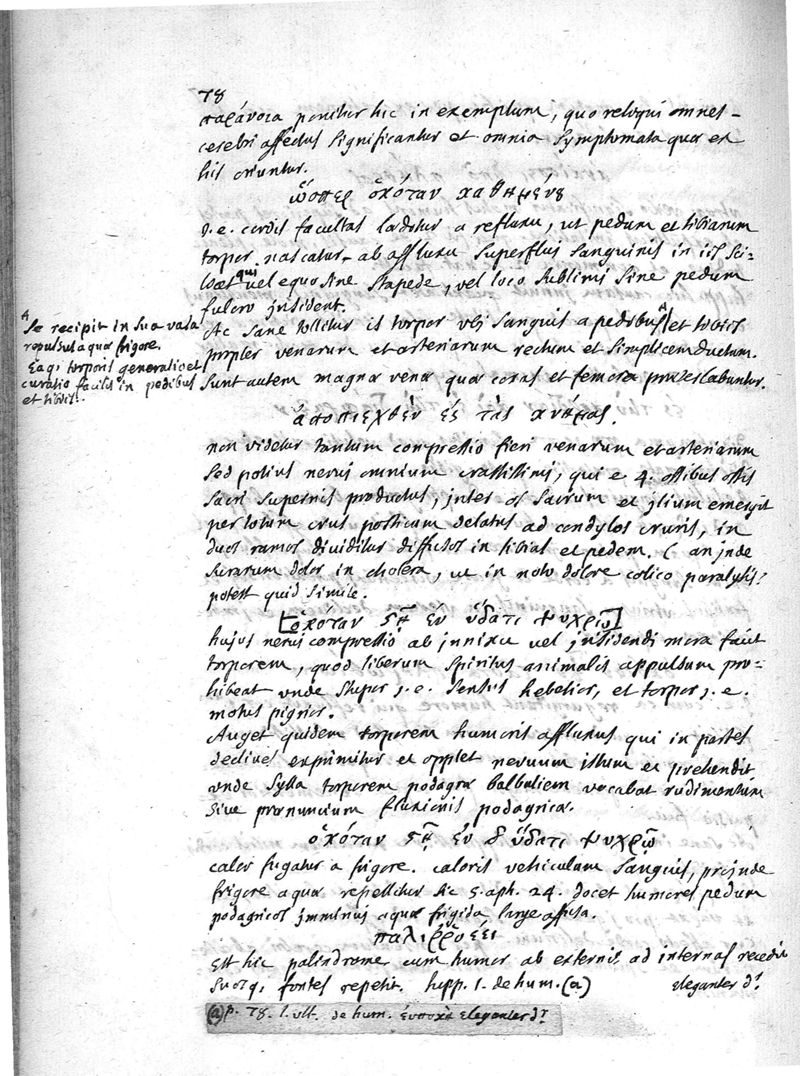 78
παράνοια ponitur hic in exemplum, quo reliqui omnes
cerebri affectus significantur et omnia symptomata quæ ex
his oriuntur.
ὥσπερ ὁκόταν καθημένῳ
i.e. cordis facultas læditur a refluxu, ut pedum et tibiarum
torpor nascatur ab affluxu superflui sanguinis in iis sci-
licet qui vel equo sine stapede, vel loco sublimi sine pedum
fulcro insident.
Ac sane tollitur is torpor ubi sanguis a pedibus A et tibiis
propter venarum et arteriarum rectum et simplicem ductum.
sunt autem magnæ venæ quæ coxas et femora
A
se recipit in sua vasa
repulsus aquæ frigore.
Eaq; torporis generatio et
curatio facilis in pedibus
et tibiis.
ἀποπιεχθὲν ἐς τὰς κνήμας.
non videtur tantum compressio fieri venarum et arteriarum
sed potius nervi omnium crassissimi, qui e 4. ossibus ossis
sacri supernis productus, inter os sacrum et ilium emergit
per totum crus posticum delatus ad condylos cruris, in
duos ramos dividitur diffusos in tibias et pedem. ( an inde
surarum dolor in cholera, ut in dolore colico paralysis?
potest quid simile.
[ὁκόταν στῇ ἐν ὕδατι ψυχρῷ]
hujus nervi compressio ab innixu vel insidendi mora facit
torporem, quod liberum spiritus animalis appulsum pro-
hibeat unde stupor i.e. sensus hebetior, et torpor i.e.
motus pigrior.
Auget quidem torporem humoris affluxus qui in partes
declives exprimitur et opplet nervum illum et prehendit
unde Sylla torporem podagræ balbutiem vocabat rudimentum
sive pronuncium fluxionis podagricæ.
ὁκόταν στῇ ἐν ὕδατι ψυχρῷ
calor fugatur a frigore. caloris vehiculum sanguis, proinde
frigore aquæ repellitur sic 5. aph. 24. docet humores pedum
podagricos imminui aqua frigida large affusa.
παλιῤῥοέει
Est hic palindrome cum humor ab externis ad internas recedit
suosq; fontes repetit. hipp. l. de hum. (a) eleganter dr.
(a) p. 78. l. ult. de hum. eleganter dr.